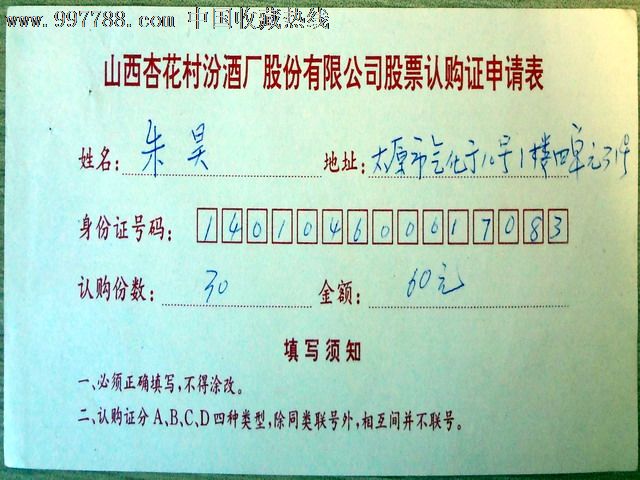 www.997788.com 中国收藏热线
山西杏花村汾酒厂股份有限公司股票认购证申请表
姓名: 朱昊 地址: 太原市 10号1楼四单元31号
身份证号码: 140104600617083
认购份数: 30 金额: 60元
填写须知
一、必须正确填写,不得涂改。
二、认购证分A、B、C、D四种类型,除同类联号外,相互间并不联号。